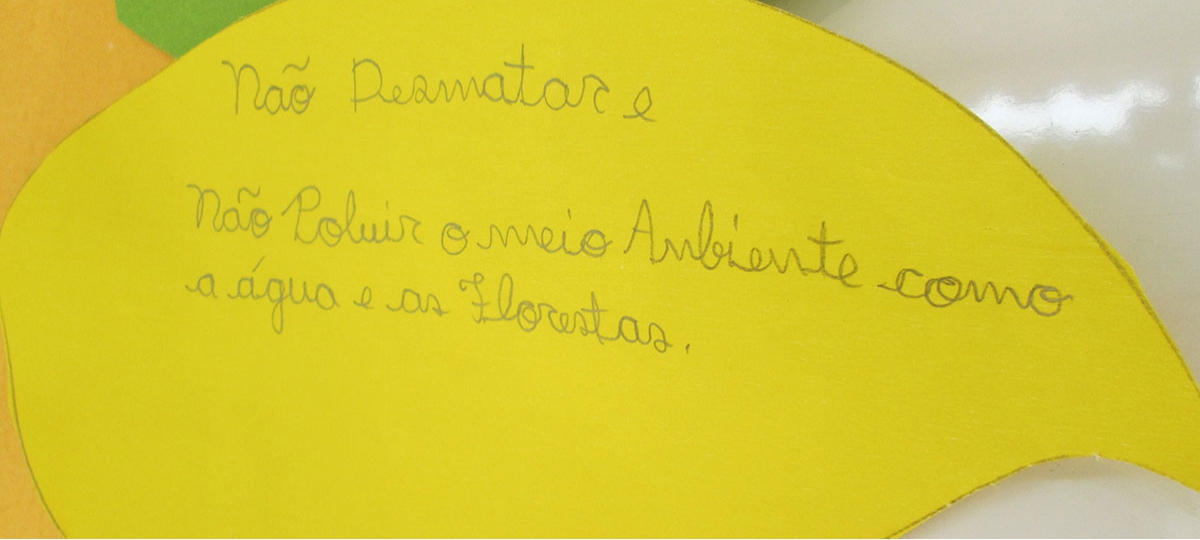 Não Desmatar e
Não Poluir o meio Anbiente como
a água e as Florestas.